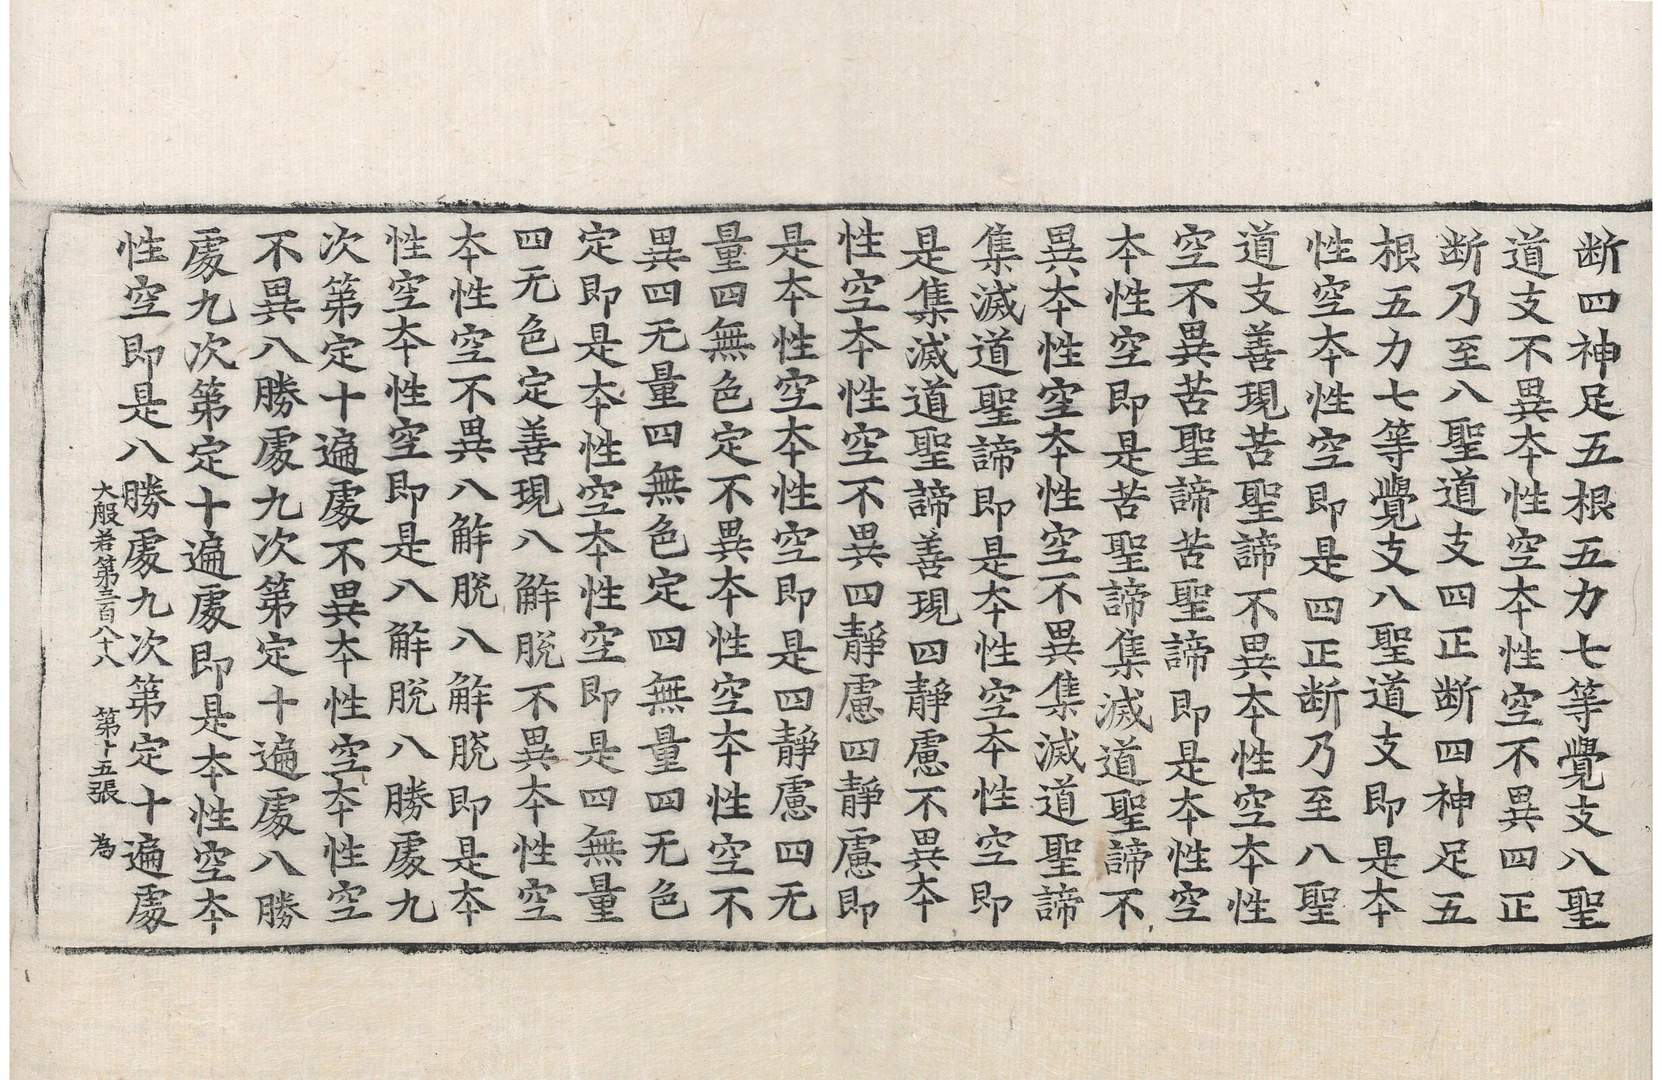 断四神足五根五力七等覺支八聖
道支不異夲性空夲性空不異四正
断乃至八聖道支四正断四神足五
根五力七等覺支八聖道支即是夲
性空夲性空即是四正断乃至八聖
道支善現苦聖諦不異夲性空夲性
空不異苦聖諦苦聖諦即是夲性空
夲性空即是苦聖諦集滅道聖諦不
異夲性空夲性空不異集滅道聖諦
集滅道聖諦即是夲性空夲性空即
是集滅道聖諦善現四靜慮不異夲
性空夲性空不異四靜慮四靜慮即
是夲性空夲性空即是四靜慮四无
量四無色定不異夲性空夲性空不
異四无量四無色定四無量四无色
定即是夲性空夲性空即是四無量
四无色定善現八解脫不異夲性空
夲性空不異八解脫八解脫即是夲
性空夲性空即是八解脫八勝處九
次第定十遍處不異夲性空夲性空
不異八勝處九次第定十遍處八勝
處九次第定十遍處即是夲性空夲
性空即是八勝處九次第定十遍處
大般若第三百八十八 第十五張 為